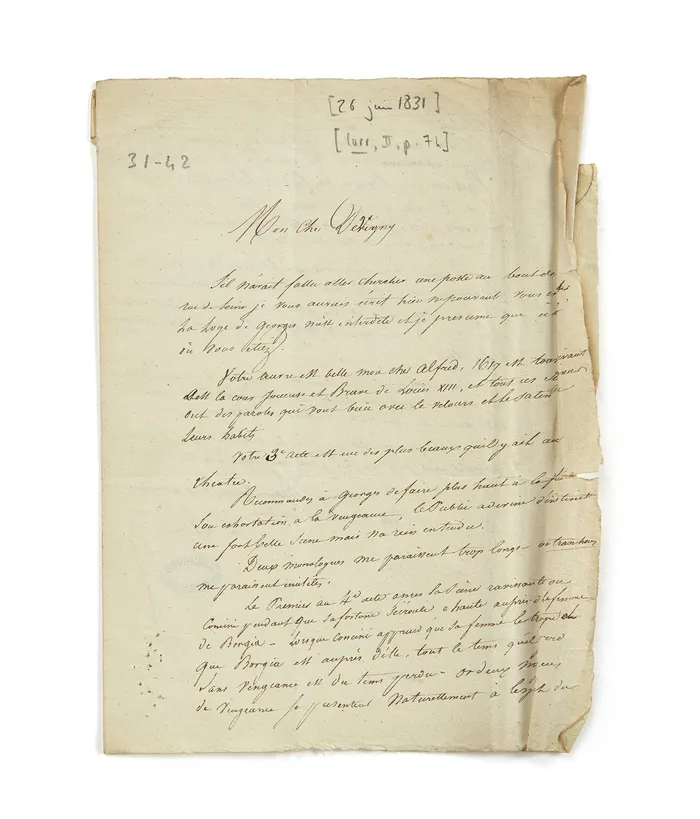 [26 juin 1831]
[Corr, II, p. 74]
31-42
Mon cher Devigny
S'il n'avait fallu aller chercher une poste au bout de
rue de Seine je vous aurais écrit hier ne pouvant vous
La loge de Georges m'est interdete et je présume que
où vous étiez.
Votre œuvre est belle mon cher Alfred, 1617 est tout vivant
la cour joueuse et Brave de Louis XIII, et tous ces
ont des paroles qui vont bien avec le velours et le satin
leurs habits
Votre 3e acte est une des plus beaux qu'il y ait au
theatre.
Recommandez à Georges de faire plus haut à la fin
Son exhortation à la vengeance, le Public a deviné d'instinct
une fort belle scene mais n'a rien entendu.
Deux monologues me paraissent trop longs
me paraissent inutiles.
Le Premier au 4e acte apres la Scène ravissante ou
Concini pendant que sa fortune s'écroule e haute auprès de la femme
de Borgia - Lorsque Concini apprend que sa femme le trope
que Borgia est auprès d'elle, tout le tems qu'il
Sans vengeance est du tems perdu - or deux
de vengeance se presentent naturellement a